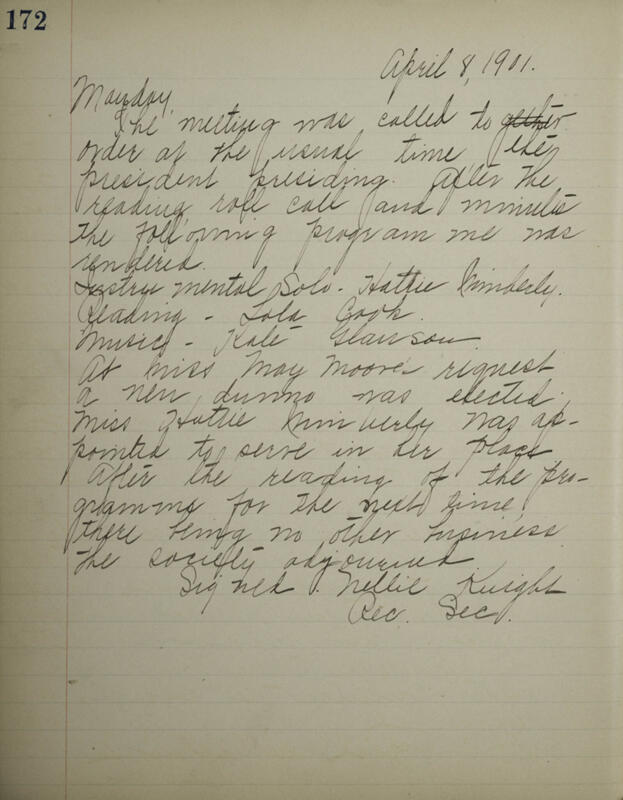 172
April 8, 1901.
Monday,
The meeting was called to
order at the usual time, the
president presiding. After the
reading roll call and minutes
the following programme was
rendered.
Instrumental Solo - Hattie Wimberly.
Reading - Lola Cook.
Music - Kate Slawson.
At Miss May Moore's request
a new was elected.
Miss Hattie Wimberly was ap-
pointed to serve in her place
After the reading of the pro-
gramme for the next time,
there being no other business
the society adjourned
Signed. Nellie Knight
Rec. Sec.